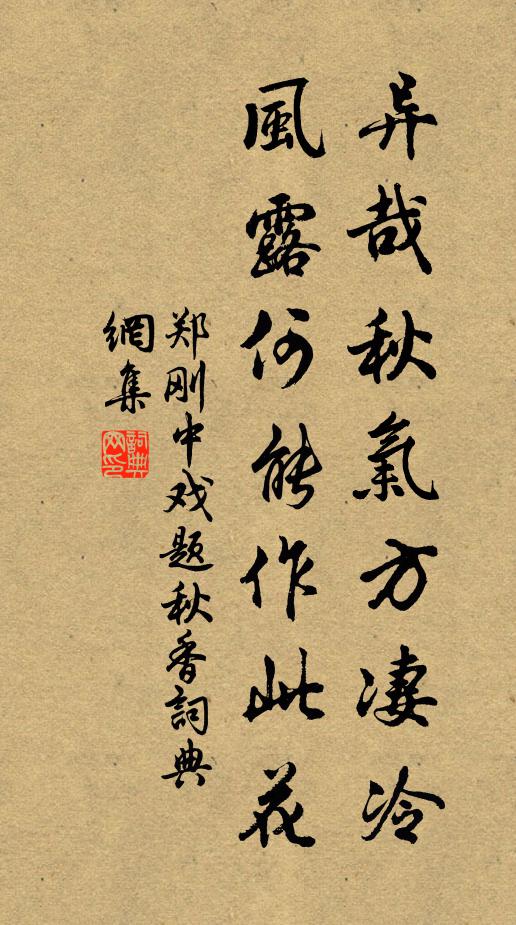 异哉秋氣方凄冷
風露何能作此花
郑刚中戏题秋香詞典
網集
詞典
网印